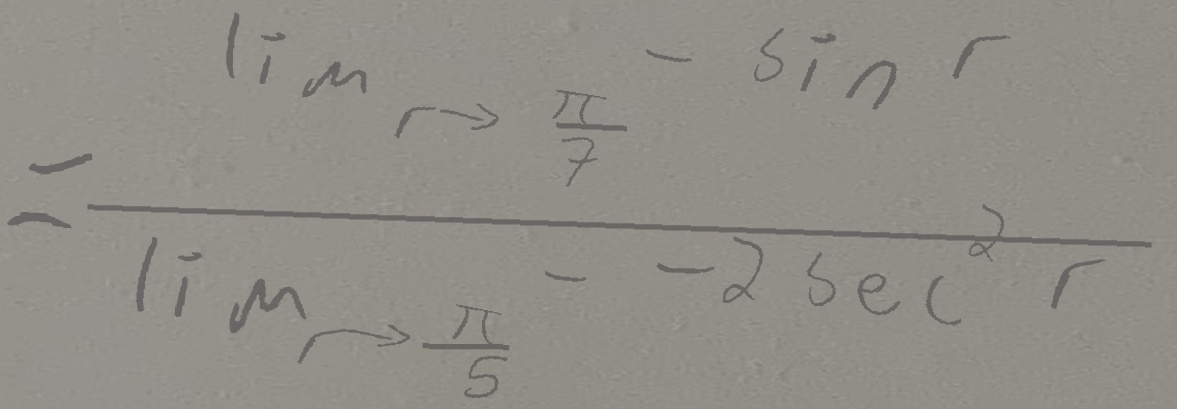 = \frac{\lim_{r \to \frac{\pi}{7}} - \sin r}{\lim_{r \to \frac{\pi}{5}} - -2 \sec^2 r}